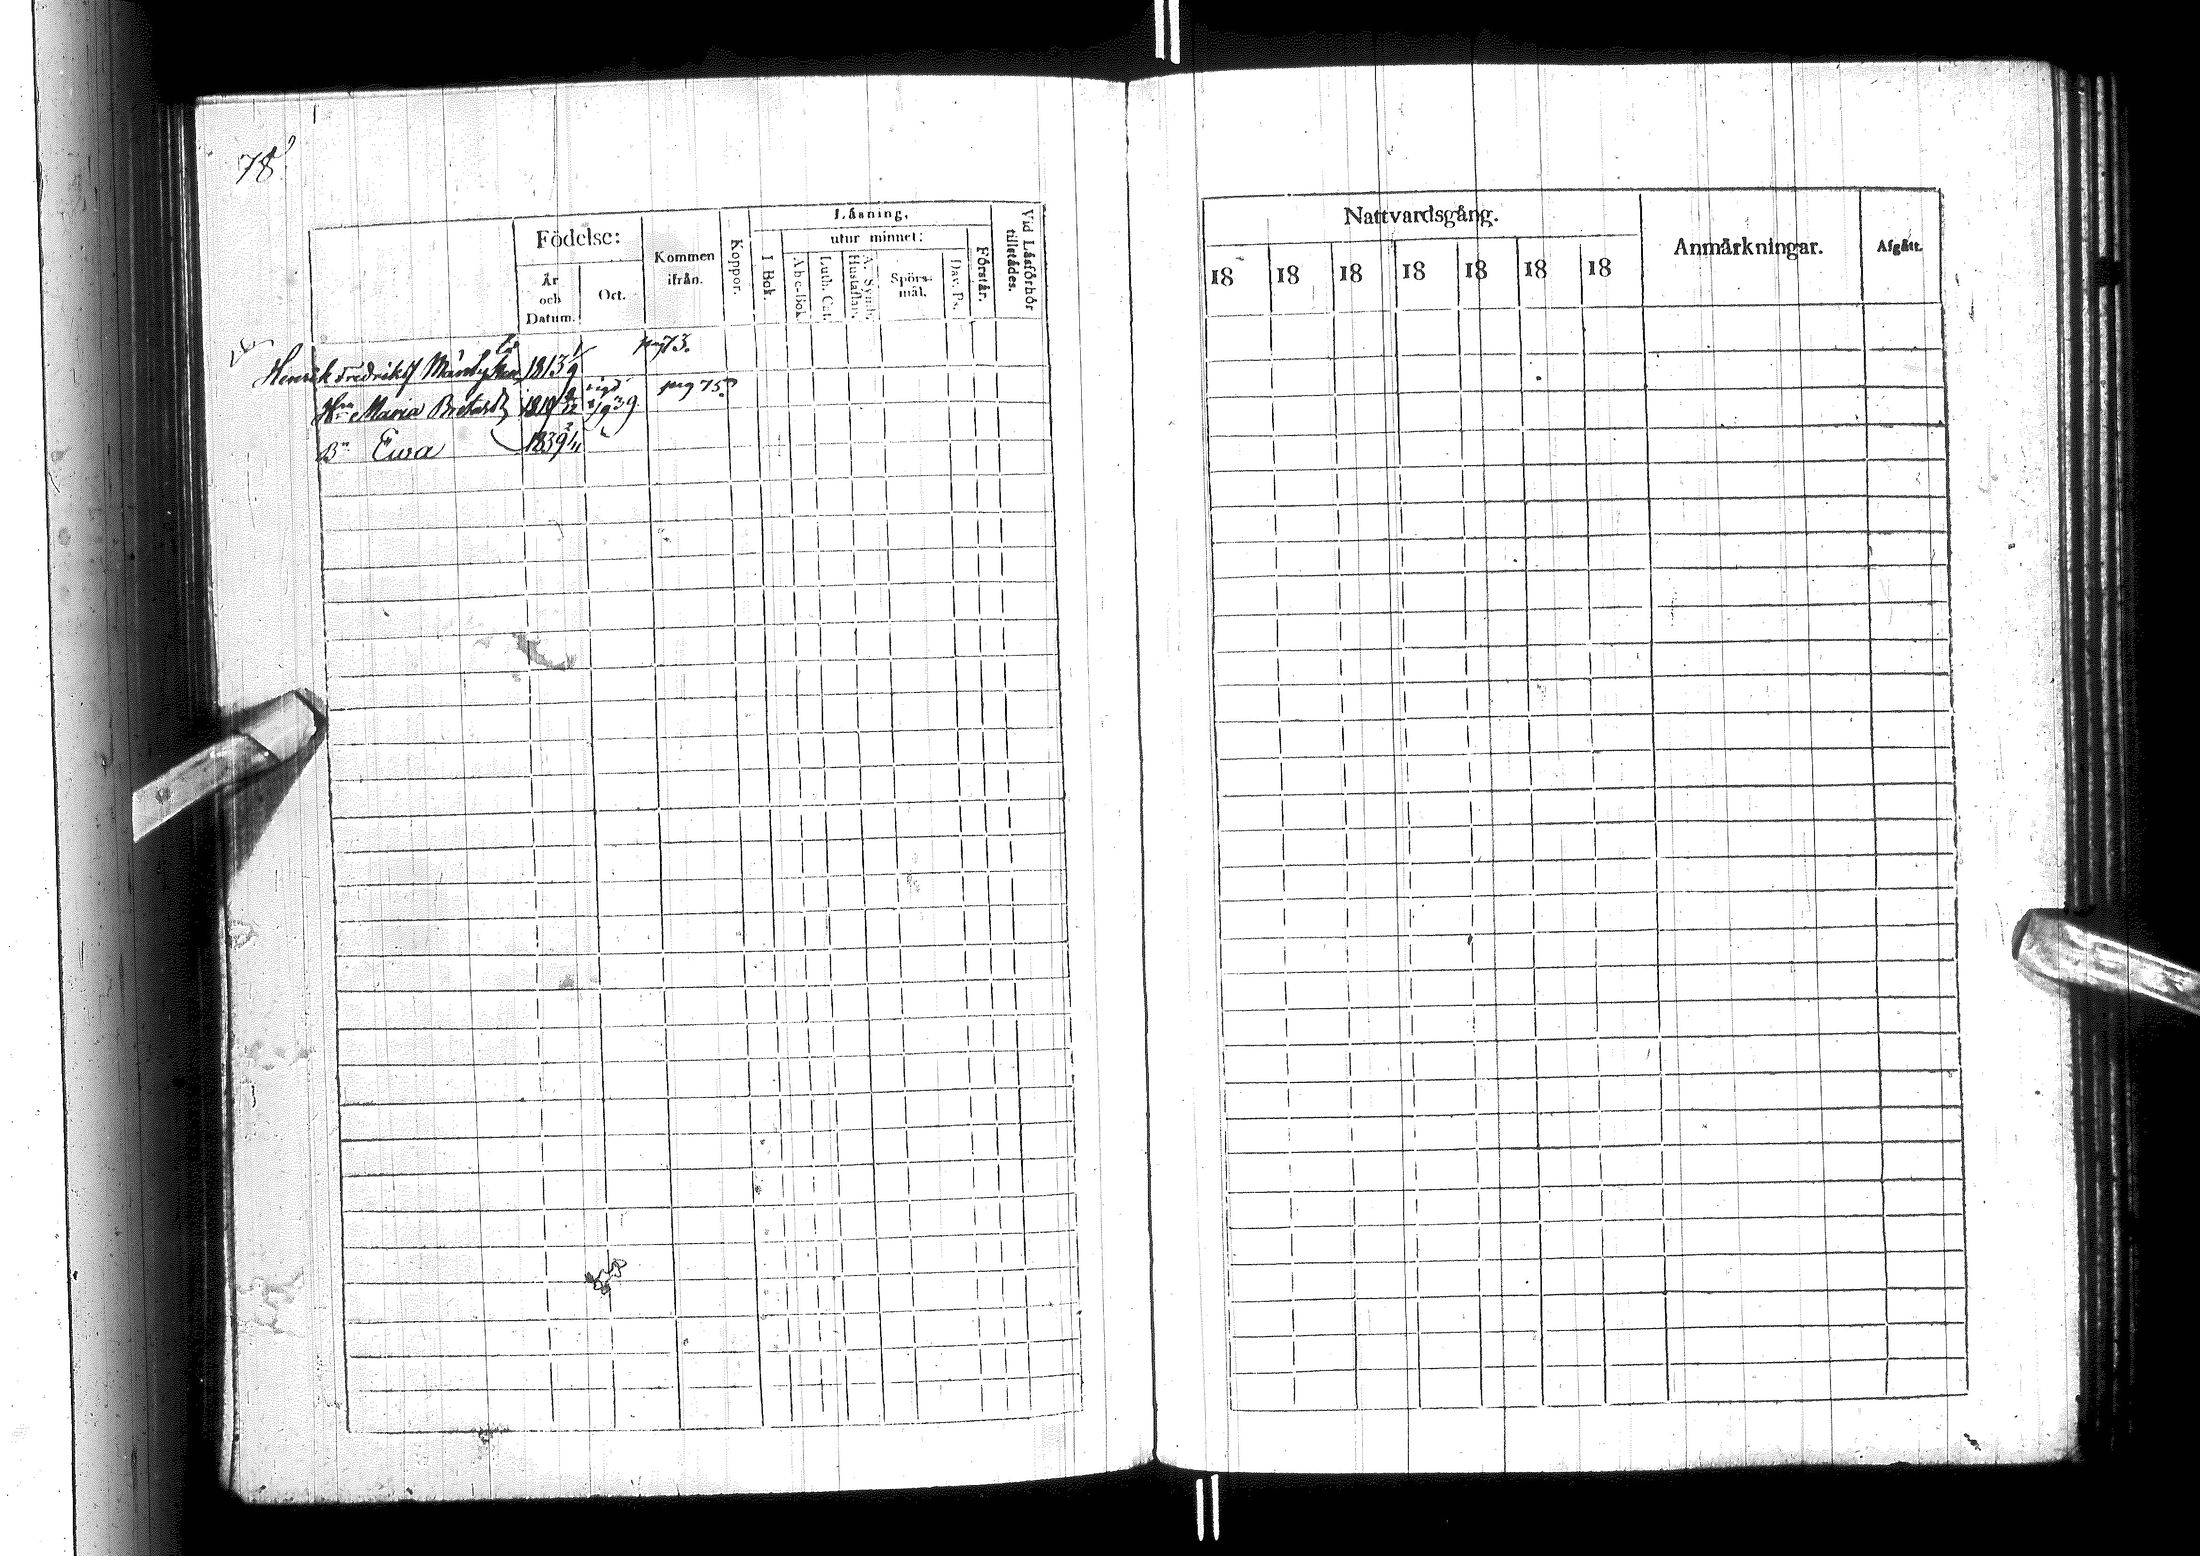 78
Födelse:
År och Datum.
Ort.
Kommen ifrån.
Koppor.
Läsning,
I Bok.
utur minnet:
Abc-Bok
Luth. Cat.
A. Symb. Hustaflan.
Spörsmål.
Dav. Ps.
Förstår.
Vid Läsförhör tillstädes.
Henrik Fredriks 1813 1/9 pag 73.
Hu Maria 1819 vigd 39 pag 75.
Bn Ewa 1839 2/11
Nattvardsgång.
18 18 18 18 18 18 18
Anmärkningar.
Afgått.